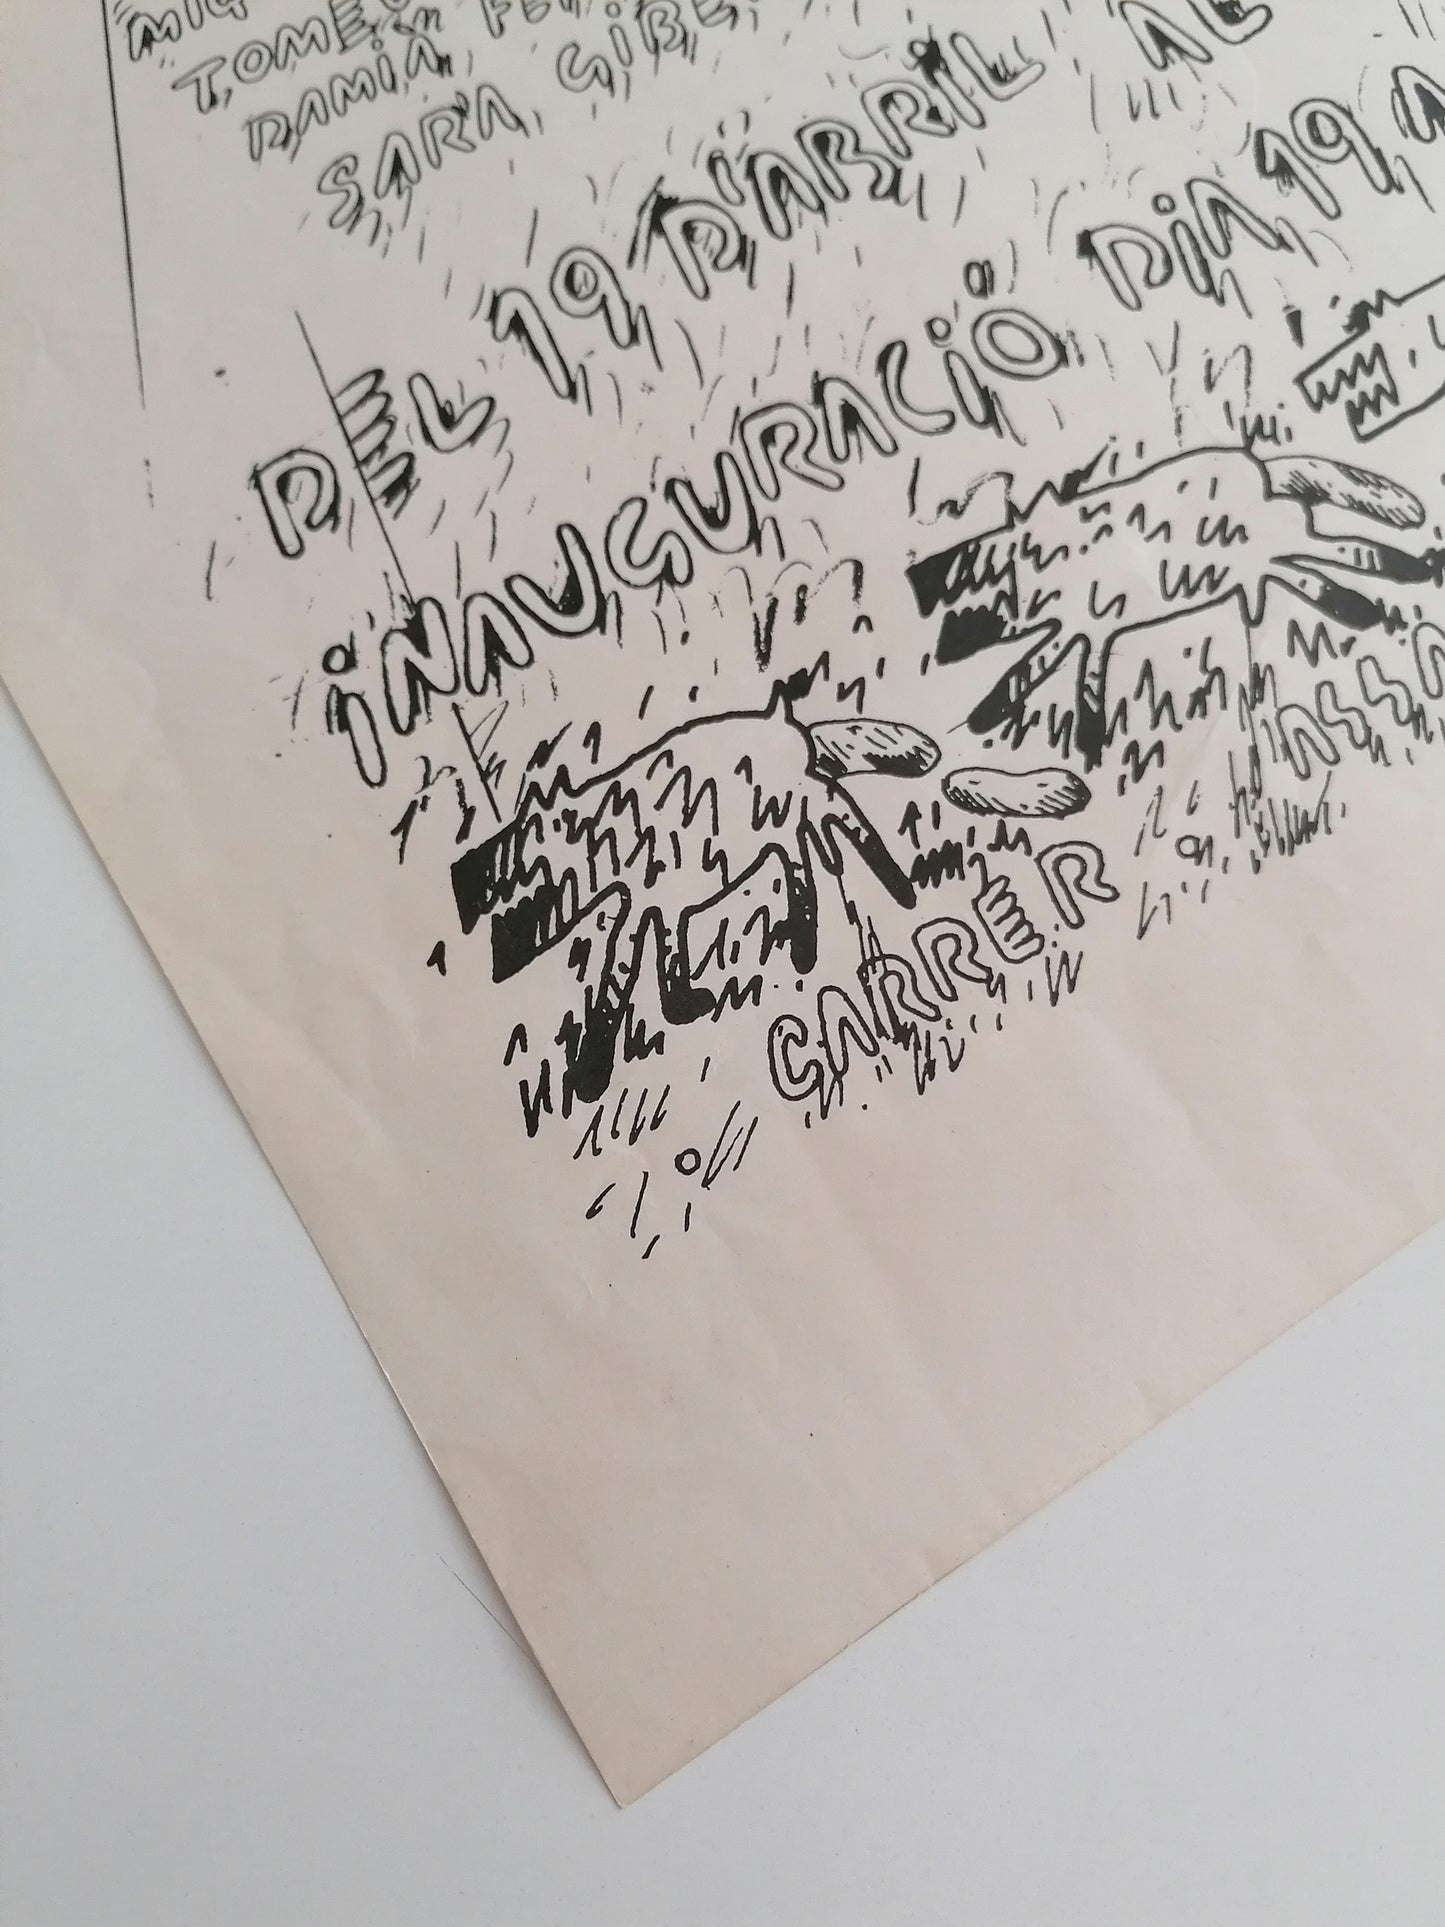 MIQ
TOMEU FE
DAMIÀ
SARA GIBE
DEL 19 D'ABRIL AL
INAUGURACIÓ DIA 19 A
CARRER